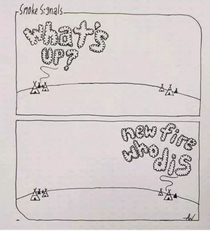 Smoke Signals
what's
up?
new fire
who
dis